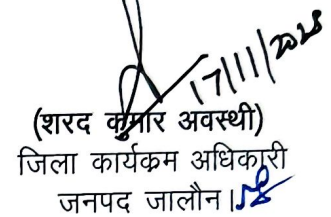 17/11/2025
(शरद कुमार अवस्थी)
जिला कार्यक्रम अधिकारी
जनपद जालौन।